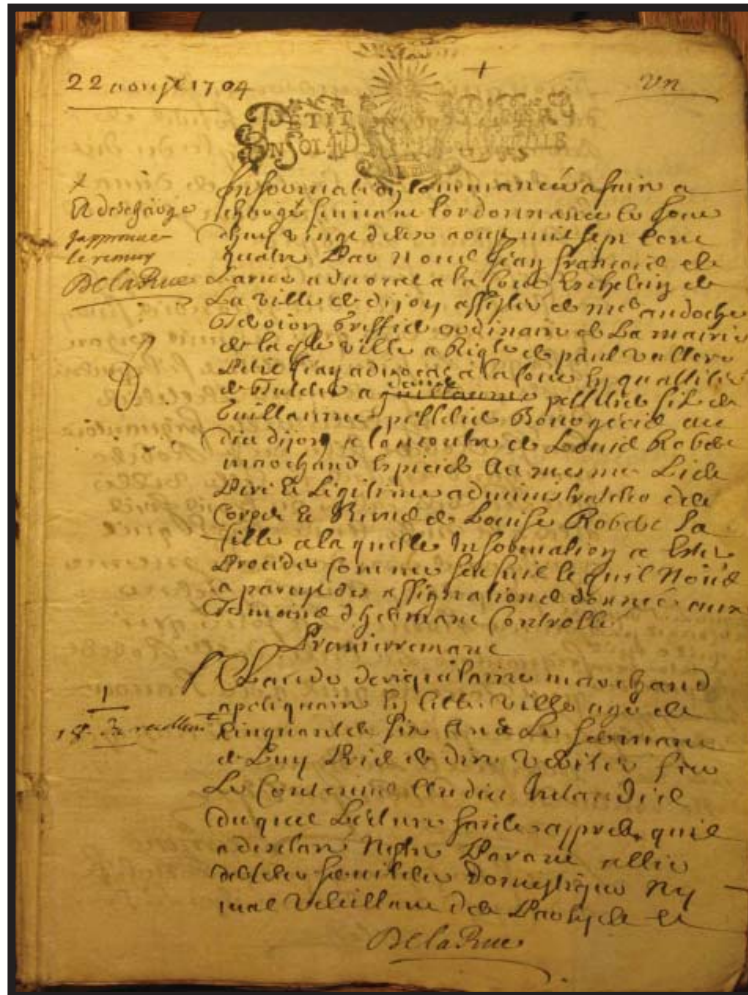 22 aoust 1704
Un
PETIT PAPIER
UN SOL IIII DENIERS
Information commancée a faire a
+
et descharge
charge suivant l'ordonnance de ce jour
japprouve
d'huy vingt deux aoust mil sept cent
le renvoy
quatre par Nous Jean francois de
DelaRue
Larue advocat a la Cour Eschevin de
La ville de dijon assisté de me andoche
greffier ordinaire de La mairie
de la dte ville a Rigle de paul vallere
petit Jean advocat a la Cour En quallité
de Tuteur a guillaume pelletier fils de
Guillaume pelletier Bourgeois au
dit dijon a l'encontre de Louis Robert
marchand Epicier au mesme Lieu
Pere et Legitime administrateur des
Corps et Biens de Louise Robert sa
fille a laquelle Information a Esté
Procedé comme s'ensuit lequel Nous
a paru des assignations donnée aux
Temoins d'huement Controllé
Premierement
1
Claude marchand
apotiquaire En cette ville agé de
cinquante six ans Le serment
de Luy Pris de dire verité sur
Le Contenu
duquel Lecture faicte apprest quil
a declaré Nestre Parant allié
debteur serviteur Domestique Ny
mal veillant des Partyes et
DelaRue